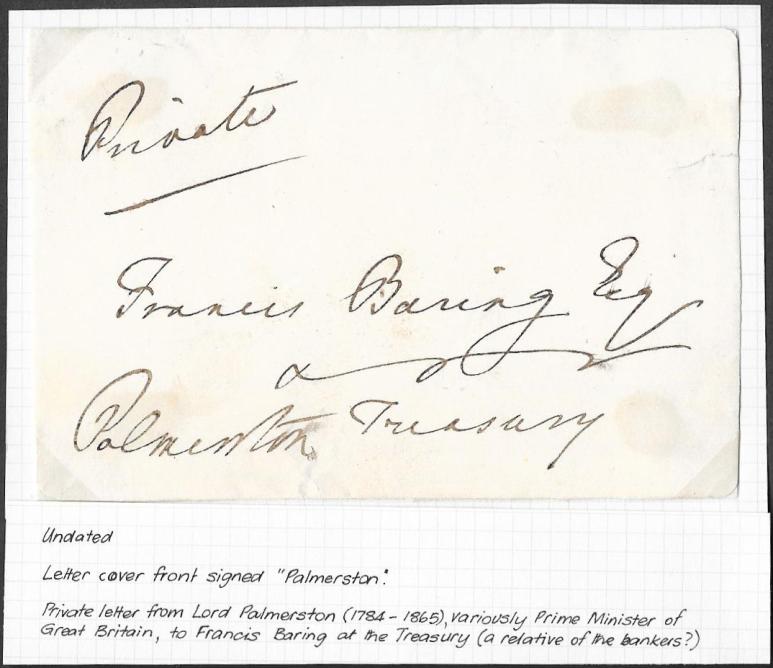 Private
Francis Baring Esq
Treasury
Palmerston
Undated
Letter cover front signed "Palmerston".
Private letter from Lord Palmerston (1784 - 1865), variously Prime Minister of
Great Britain, to Francis Baring at the Treasury (a relative of the bankers?)